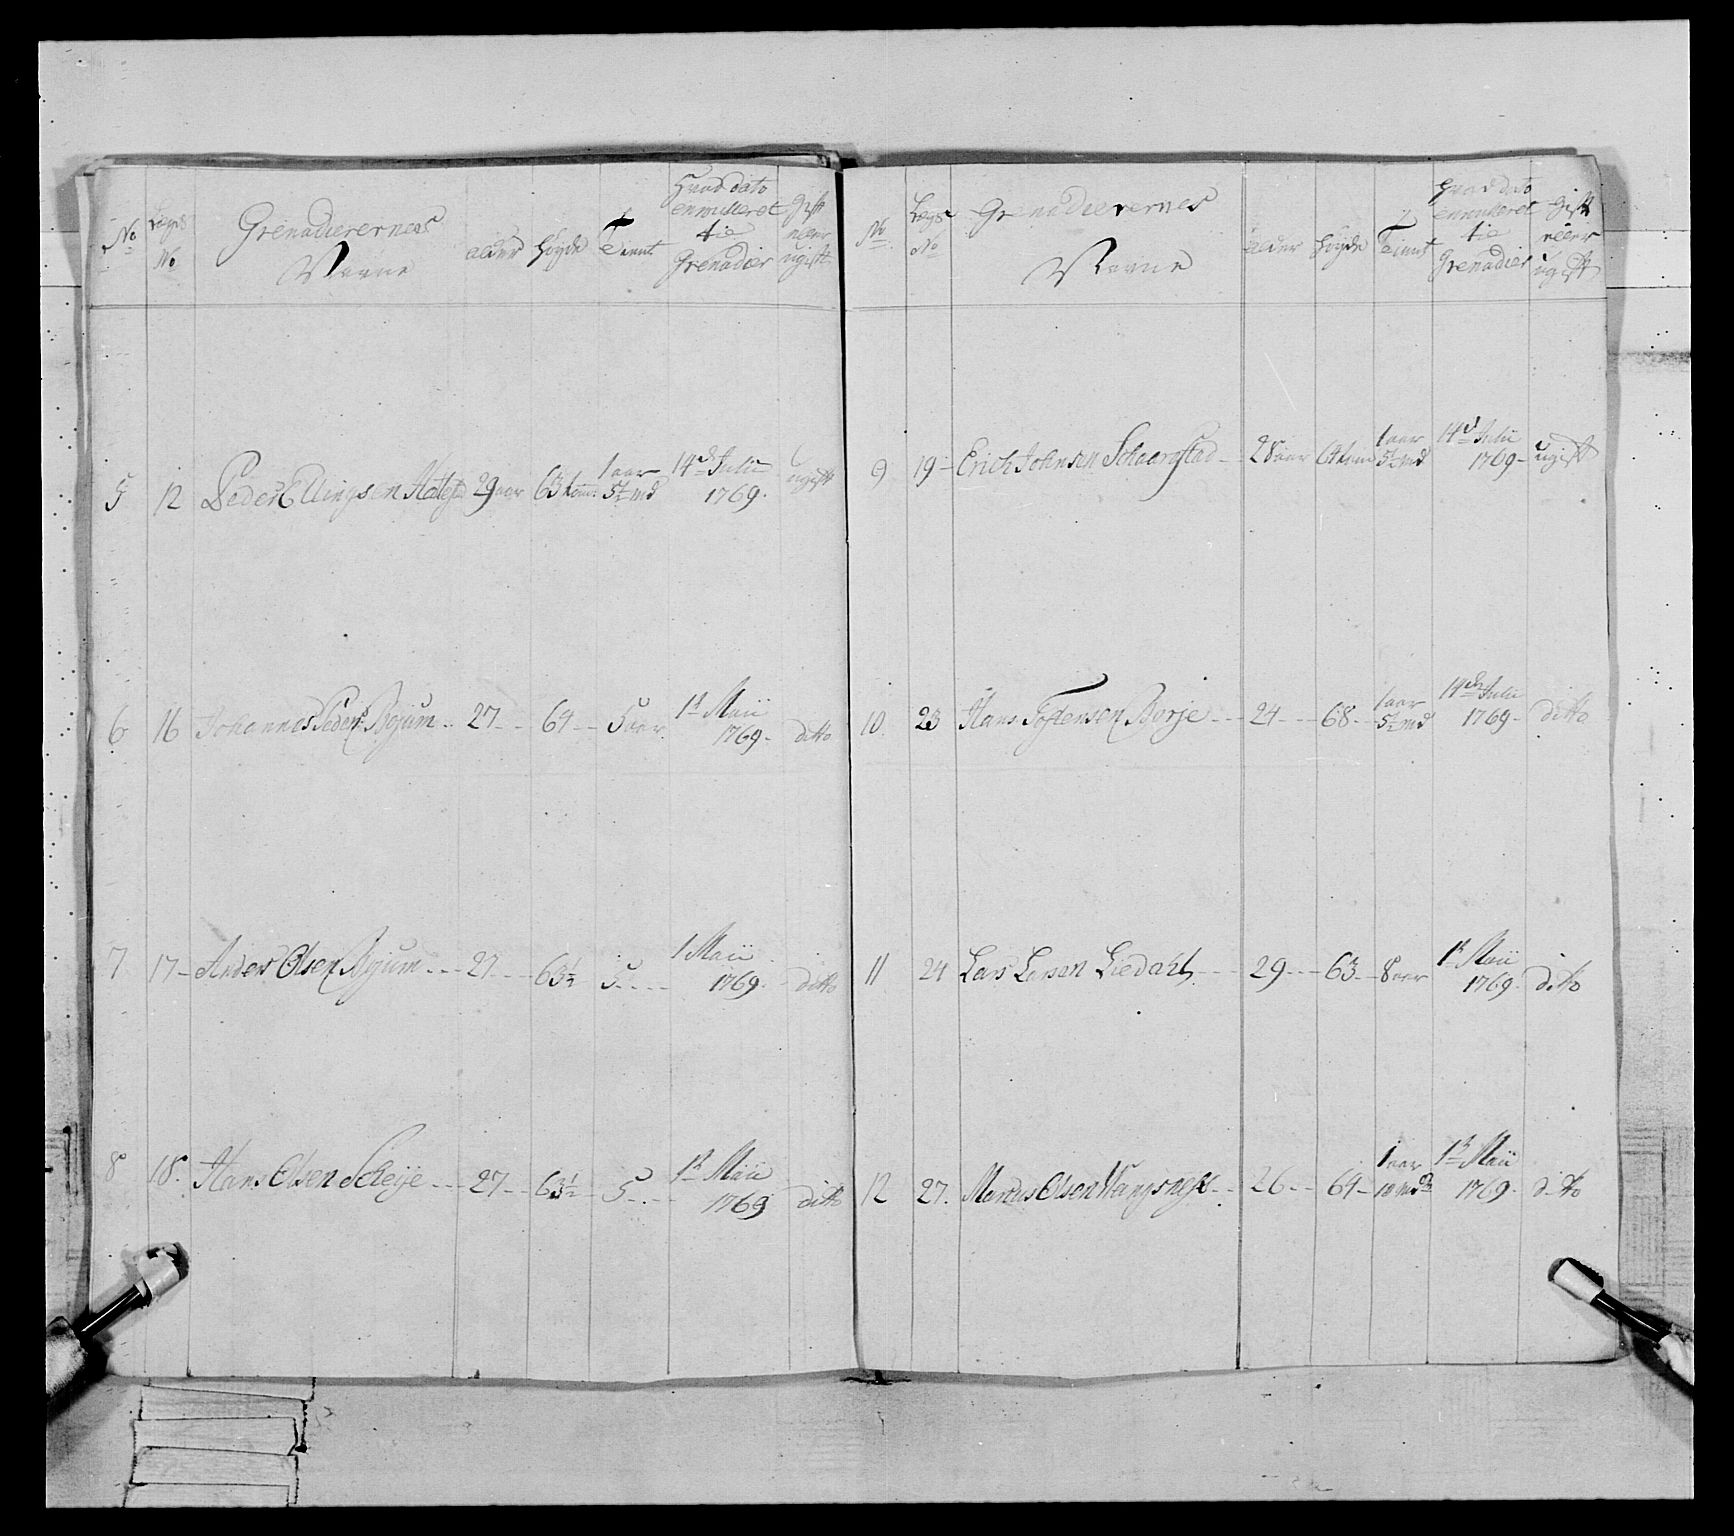 No
Lægs No
Grenadierernes Navne
alder
høyde
Tient
Hvad dato enrulleret til Grenadier
gift eller ugift
5 12 Peder Ellingsen 29 aar 63 tom: 1 aar 5½ md 14d Julii 1769. ugift
6 16 Johannes Peders: Bøjum 27 64 5 aar 1t Maii 1769. ditto
7 17 Anders Olsen Bøjum 27 63½ 5 1 Maii 1769. ditto
8 18. Hans Olsen Scheije 27 63½ 5 1t Maii 1769 ditto
No
Lægs No
Grenadierernes Navne
alder
høyde
Tient
hvad dato enrulleret til Grenadier
gift eller ugift
9 19 Erich Johnsen Schaarestad 28 aar 64 tom 1 aar 5½ md 14d Julii 1769 ugift
10. 23 Hans Tostensen Børje 24 68 1 aar 5½ md 14de Julii 1769 ditto
11 24 Lars Larsen Liedahl 29 63 8 aar 1t Maii 1769. ditto
12 27. Marcus Olsen Wangsnæs 26 64 1 aar 10 md 1t Maii 1769. ditto